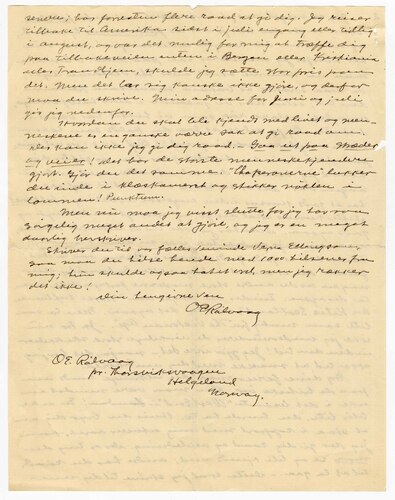 sender; har forresten flere raad at gi dig. Jeg reiser
tilbake til Amerika sidst i juli engang eller tidlig
i august, og var det mulig for mig at træffe dig
paa tilbakeveien enten i Bergen eller Kristiania
eller Trondhjem, skulde jeg sætte stor pris paa
det. Men det lar sig kanske ikke gjøre, og derfor
maa du skrive. Min adresse for Juni og juli
gir jeg nedenfor.
Hvordan du skal bli kjendt med livet og men-
neskene er en ganske værre sak at gi raad om.
Det kan ikke jeg gi dig raad. – Gaa ut paa stræder
og veier! Det har de største menneskekjendere
gjort. Gjør du det samme. lukker
du inde i klæskammeret og stikker nøklen i
lommen! Punktum.
Men nu maa jeg visst slutte for jeg har saa
sørgelig meget andet at gjøre, og jeg er en meget
daarlig
Skriver du til vor fælles veninde
saa maa du hilse hende med 1000 hilsener fra
mig; hun skulde ogsaa hat et ord, men jeg rækker
det ikke!
Din hengivne ven
O E Rølvaag
O. E. Rølvaag
pr. Thorsvikvaagen
Helgeland
Norway.